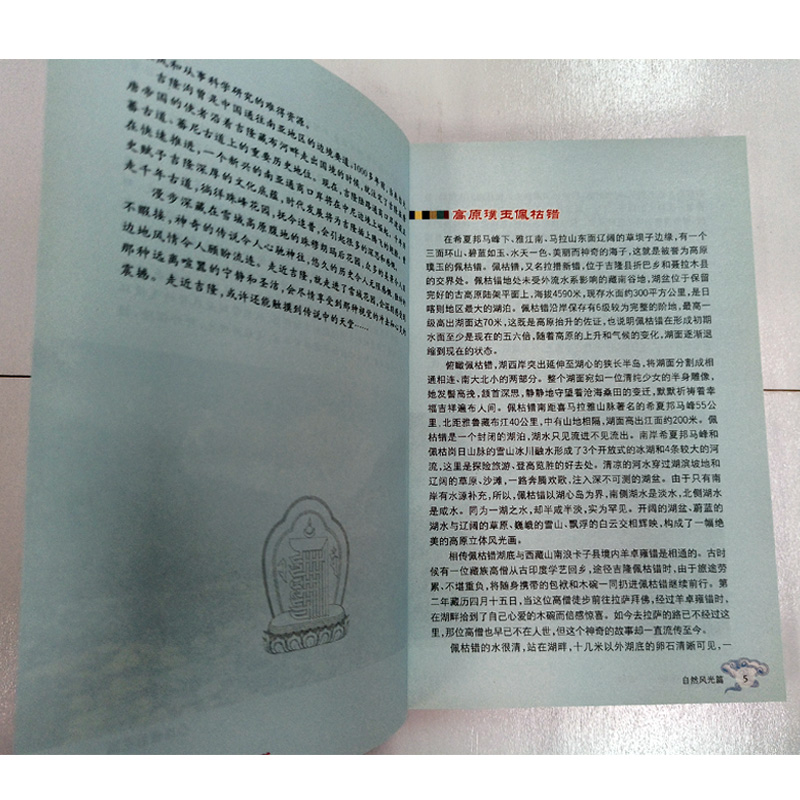 风和从事科学研究的难得资源。
吉隆沟曾是中国通往南亚地区的边境要道，1000多年前，
唐帝国的使者沿着吉隆藏布河畔走出国境的时候，就注定了吉隆
蕃古道、蕃尼古道上的重要历史地位。现在，吉隆
在快速推进，一个新兴的南亚通商口岸将在中尼边境上
史赋予吉隆深厚的文化底蕴，时代发展将为吉隆插上腾飞的
走千年古道，徜徉珠峰花园，抚今追昔，会引起很多的
漫步深藏在雪域高原腹地的珠穆朗玛后花园，众多的
不暇接，神奇的传说令人心驰神往，悠久的历史令人
边地风情令人顾盼流连。走近吉隆，就走进了雪域花园，会
那种远离喧嚣的宁静和圣洁，会尽情享受到那种视觉的冲击和心灵的
震撼。走近吉隆，或许还能触摸到传说中的天堂……
高原璞玉佩枯错
在希夏邦马峰下、雅江南、马拉山东面辽阔的草坝子边缘，有一个
三面环山、碧蓝如玉、水天一色、美丽而神奇的海子，这就是被誉为高原
璞玉的佩枯错。佩枯错，又名拉措新错，位于吉隆县折巴乡和聂拉木县
的交界处。佩枯错地处未受外流水系影响的藏南谷地，湖盆位于保留
完好的古高原陆架平面上，海拔4590米，现存水面约300平方公里，是日
喀则地区最大的湖泊。佩枯错沿岸保存有6级较为完整的阶地，最高一
级高出湖面达70米，这既是高原抬升的佐证，也说明佩枯错在形成初期
水面至少是现在的五六倍，随着高原的上升和气候的变化，湖面逐渐退
缩到现在的状态。
俯瞰佩枯错，湖西岸突出延伸至湖心的狭长半岛，将湖面分割成相
通相连、南大北小的两部分。整个湖面宛如一位清纯少女的半身雕像，
她发髻高挽，颔首深思，静静地守望着沧海桑田的变迁，默默祈祷着幸
福吉祥遍布人间。佩枯错南距喜马拉雅山脉著名的希夏邦马峰55公
里，北距雅鲁藏布江40公里，中有山地相隔，湖面高出江面约200米。佩
枯错是一个封闭的湖泊，湖水只见流进不见流出。南岸希夏邦马峰和
佩枯岗日山脉的雪山冰川融水形成了3个开放式的冰湖和4条较大的河
流，这里是探险旅游、登高览胜的好去处。清凉的河水穿过湖滨坡地和
辽阔的草原、沙滩，一路奔腾欢歌，注入深不可测的湖盆。由于只有南
岸有水源补充，所以，佩枯错以湖心岛为界，南侧湖水是淡水，北侧湖水
是咸水。同为一湖之水，却半咸半淡，实为罕见。开阔的湖盆、蔚蓝的
湖水与辽阔的草原、巍峨的雪山、飘浮的白云交相辉映，构成了一幅绝
美的高原立体风光画。
相传佩枯错湖底与西藏山南浪卡子县境内羊卓雍错是相通的。古时
候有一位藏族高僧从古印度学艺回乡，途径吉隆佩枯错时，由于旅途劳
累、不堪重负，将随身携带的包袱和木碗一同扔进佩枯错继续前行。第
二年藏历四月十五日，当这位高僧徒步前往拉萨拜佛，经过羊卓雍错时，
在湖畔拾到了自己心爱的木碗而倍感惊喜。如今去拉萨的路已不经过这
里，那位高僧也早已不在人世，但这个神奇的故事却一直流传至今。
佩枯错的水很清，站在湖畔，十几米以外湖底的卵石清晰可见，一
自然风光篇 5